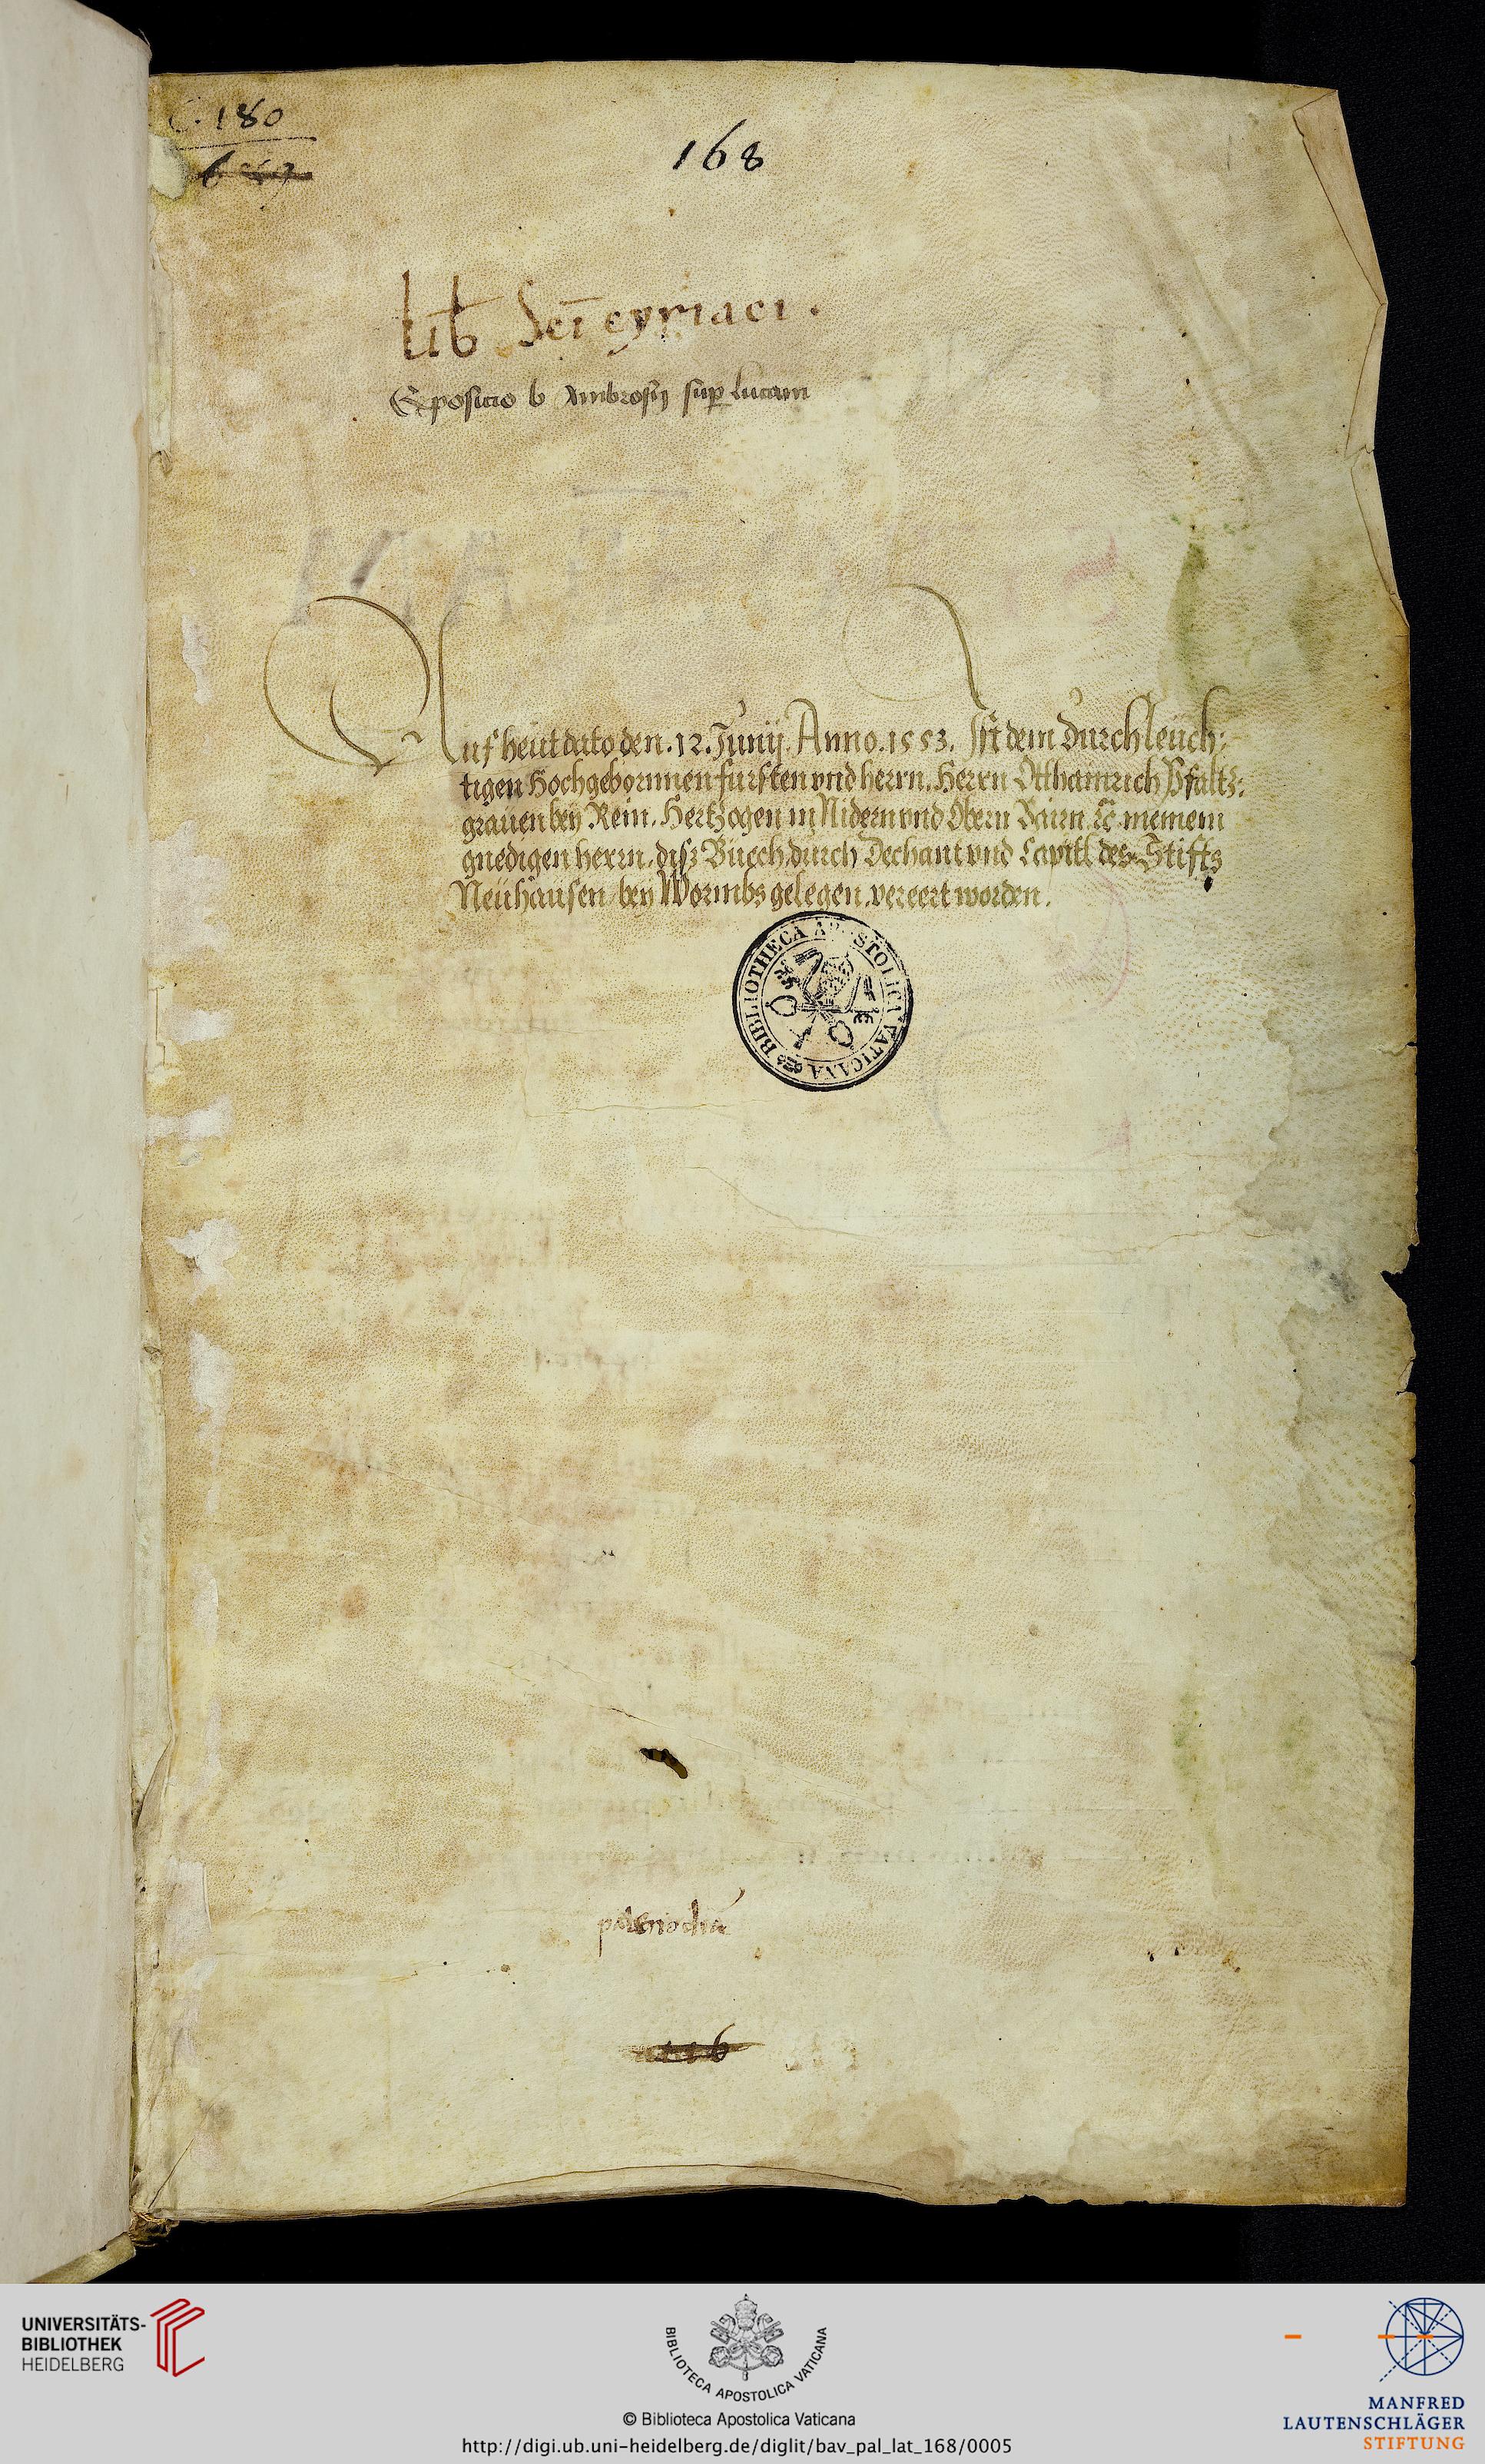 C. 180
168
lib Sci cyriaci .
Expositio b Ambrosij sup lucam
Auf heüt dato den . 12 . Junij . Anno . 1553 . Ist dem durchleuch:
tigen hochgebornnen fursten vnd herrn, Herrn Otthainrich Pfaltz:
grauen bey Rein, Hertzogen in Nidern vnd Obern Bairn, &c meinem
gnedigen herrn, disz Buech, durch Dechant vnd Capitl des Stiffts
Neuhausen, bey Wormbs gelegen, vereert worden .
BIBLIOTHECA APOSTOLICA VATICANA
UNIVERSITÄTS-
BIBLIOTHEK
HEIDELBERG
BIBLIOTECA APOSTOLICA VATICANA
© Biblioteca Apostolica Vaticana
http://digi.ub.uni-heidelberg.de/diglit/bav_pal_lat_168/0005
MANFRED
LAUTENSCHLÄGER
STIFTUNG